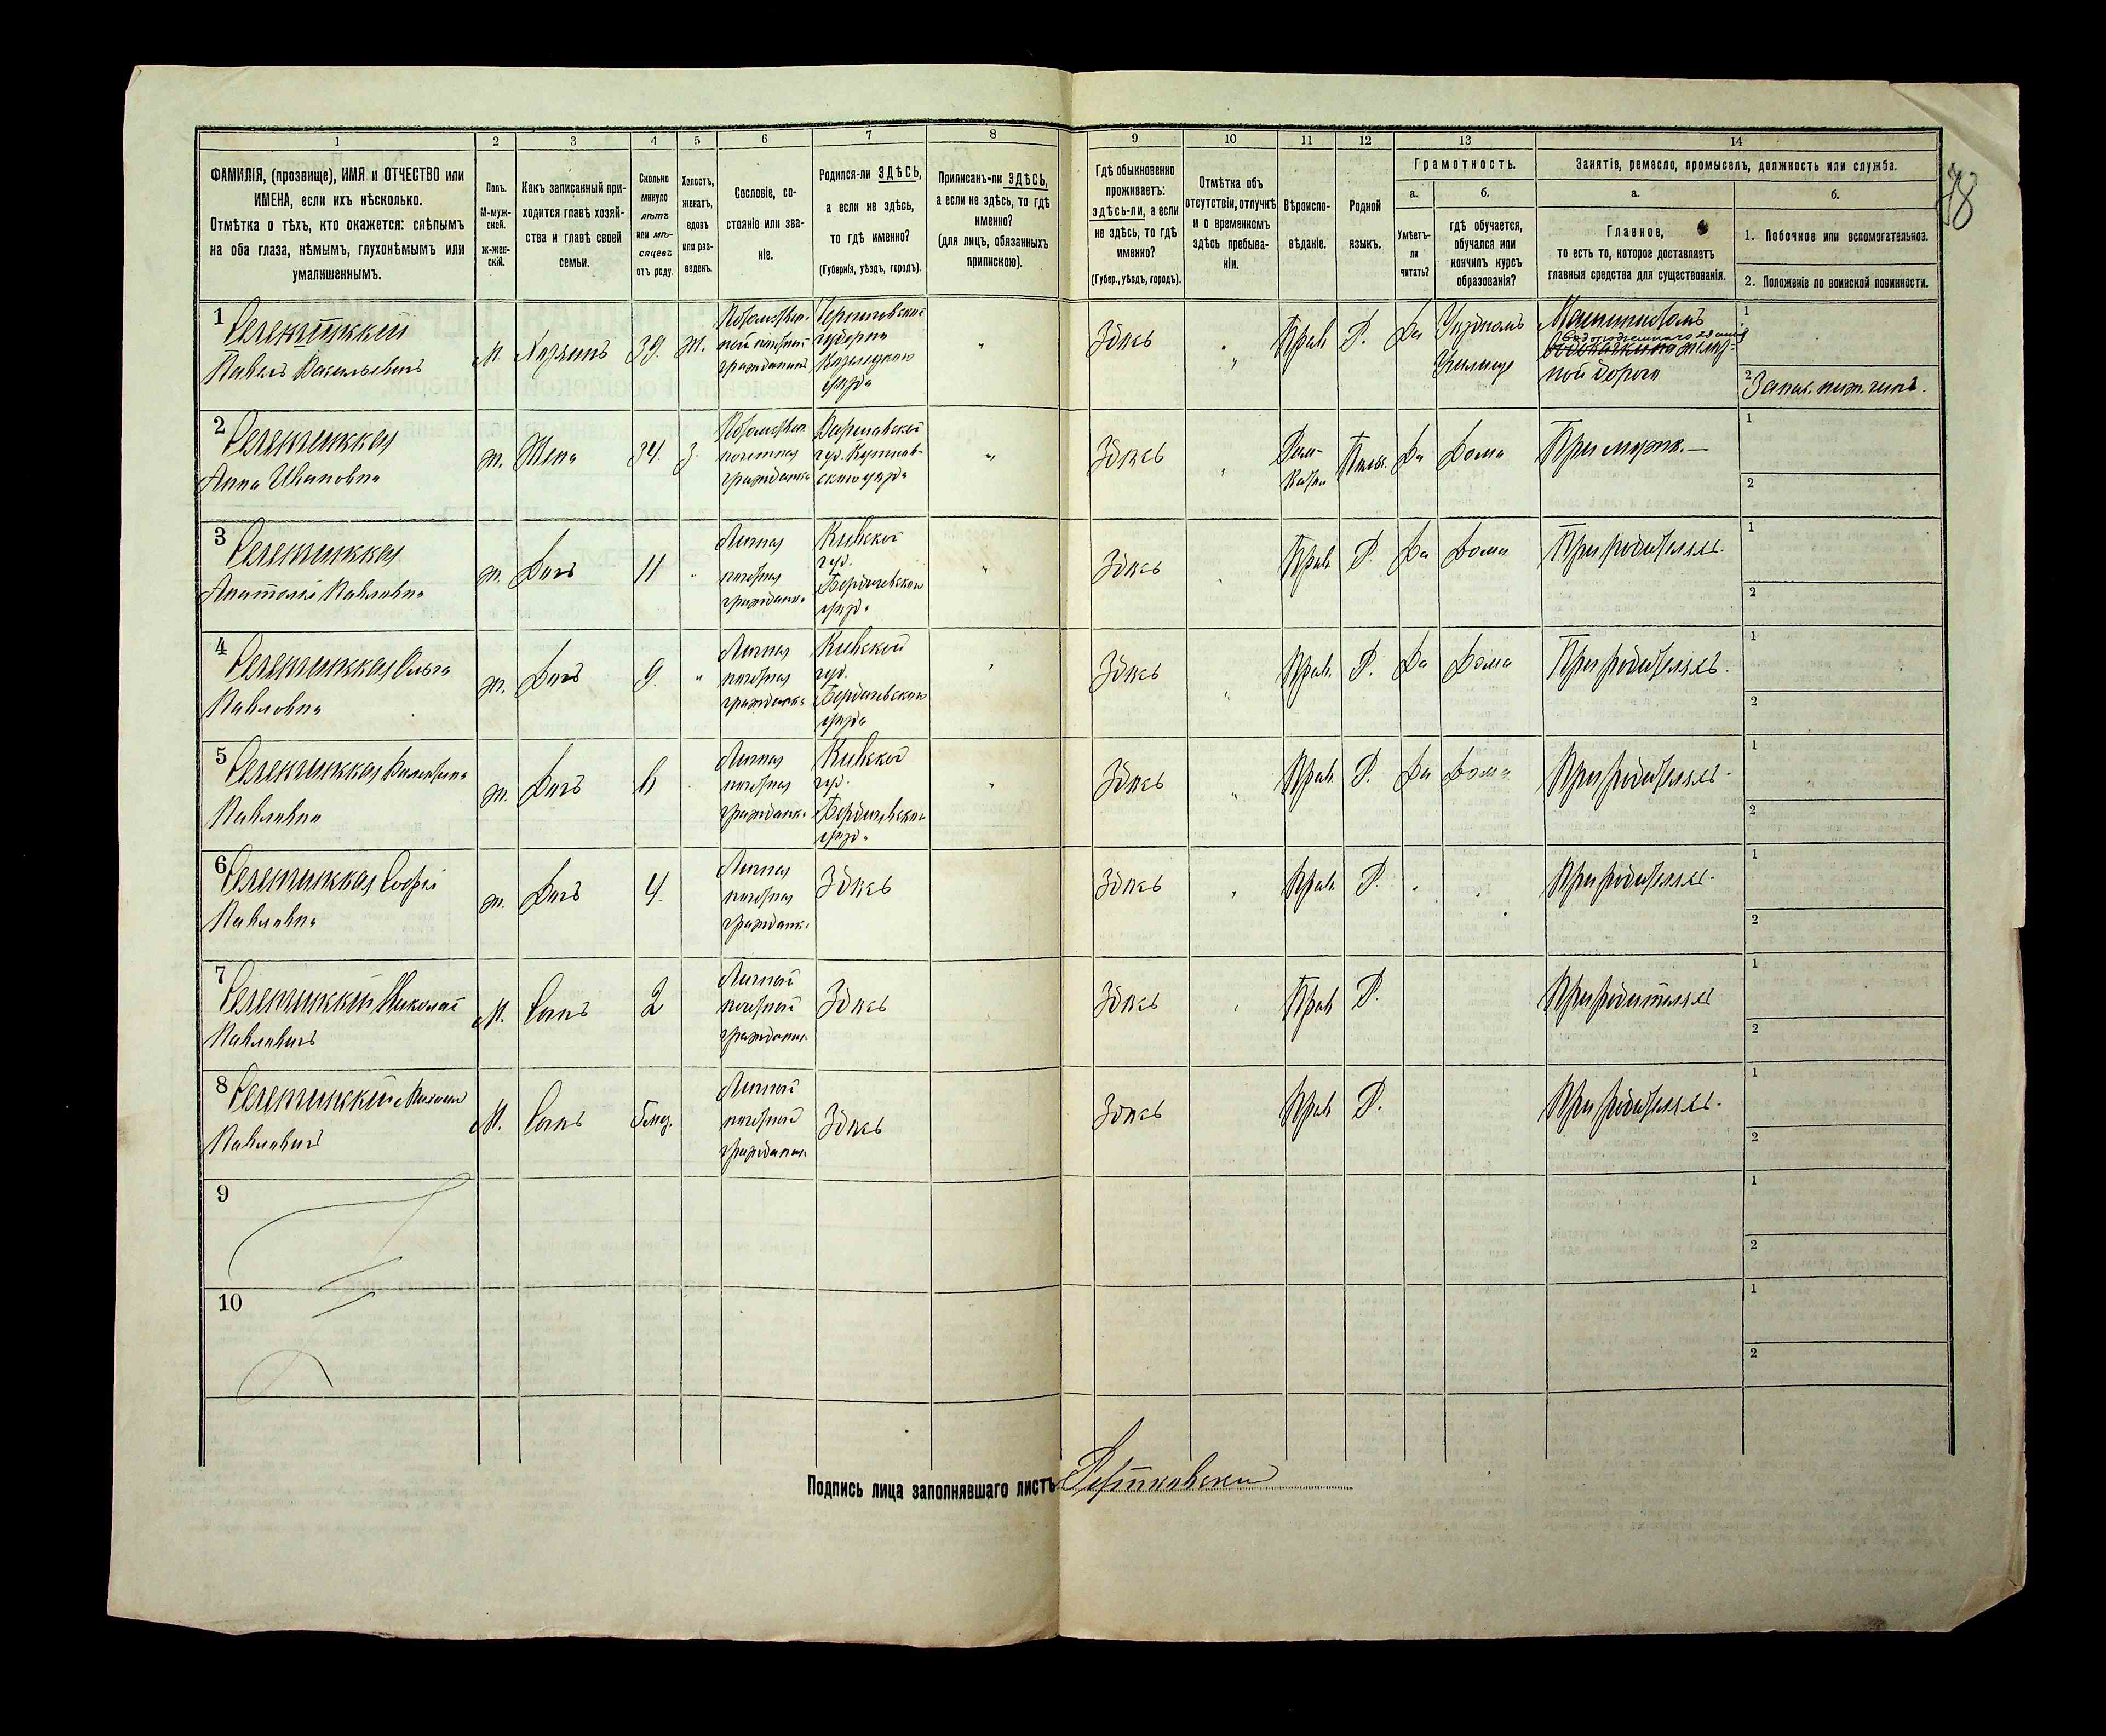 1 2 3 4 5 6 7 8 9 10 11 12 13 14
ФАМИЛІЯ, (прозвище), ИМЯ и ОТЧЕСТВО или
ИМЕНА, если ихъ нѣсколько.
Отмѣтка о тѣхъ, кто окажется: слѣпымъ
на оба глаза, нѣмымъ, глухонѣмымъ или
умалишеннымъ.
Полъ.
М-муж-
ской.
ж-жен-
скій.
Какъ записанный при-
ходится главѣ хозяй-
ства и главѣ своей
семьи.
Сколько
минуло
лѣтъ
или мѣ-
сяцевъ
отъ роду.
Холостъ,
женатъ,
вдовъ
или раз-
веденъ.
Сословіе, со-
стояніе или зва-
ніе.
Родился-ли ЗДѢСЬ,
а если не здѣсь,
то гдѣ именно?
(Губернія, уѣздъ, городъ).
Приписанъ-ли ЗДѢСЬ,
а если не здѣсь, то гдѣ
именно?
(для лицъ, обязанныхъ
припискою).
Гдѣ обыкновенно
проживаетъ:
здѣсь-ли, а если
не здѣсь, то гдѣ
именно?
(Губер., уѣздъ, городъ).
Отмѣтка объ
отсутствіи, отлучкѣ
и о временномъ
здѣсь пребыва-
ніи.
Вѣроиспо-
вѣданіе.
Родной
языкъ.
Грамотность.
а.
Умѣетъ-
ли
читать?
б.
гдѣ обучается,
обучался или
кончилъ курсъ
образованія?
Занятіе, ремесло, промыселъ, должность или служба.
а.
Главное,
то есть то, которое доставляетъ
главныя средства для существованія.
б.
1. Побочное или вспомогательное.
2. Положеніе по воинской повинности.
78
1
Павелъ Васильевичъ
М. Хозяинъ 39. Ж.
гражданинъ
Черниговской
губерніи
Козелецкаго
уѣзда
Здѣсь Прав Р. Да
Уѣздномъ
Училище
Машинистомъ
ной дороги
1
2 Запас. ниж. чинъ.
2
Анна Ивановна
ж. Жена 34. З.
почетная
гражданка
Варшавской
губ. Кутнов-
скаго уѣзда
Здѣсь
Рим-
Катол
Польс. Да Дома При мужѣ.
1
2
3
Павловна
ж. Дочь 11
Личная
почетная
гражданка
Кіевской
губ.
Бердичевскаго
уѣзда
Здѣсь Прав Р. Да Дома При родителяхъ.
1
2
4
Ольга
Павловна
ж. Дочь 9.
Личная
почетная
гражданка
Кіевской
губ.
Бердичевскаго
уѣзда
Здѣсь Прав. Р. Да Дома При родителяхъ.
1
2
5
Валентина
Павловна
ж. Дочь 6
Личная
почетная
гражданка
Кіевской
губ.
Бердичевскаго
уѣзда
Здѣсь Прав. Р. Да Дома При родителяхъ.
1
2
6
Софія
Павловна
ж. Дочь 4.
Личная
почетная
гражданка
Здѣсь Здѣсь Прав. Р. При родителяхъ.
1
2
7
Николай
Павловичъ
М. Сынъ 2
Личный
почетный
гражданин
Здѣсь Здѣсь Прав Р. При родителяхъ
1
2
8
Михаилъ
Павловичъ
М. Сынъ
Личный
почетный
гражданин
Здѣсь Здѣсь Прав Р. При родителяхъ.
1
2
9
1
2
10
1
2
Подпись лица заполнявшаго листъ